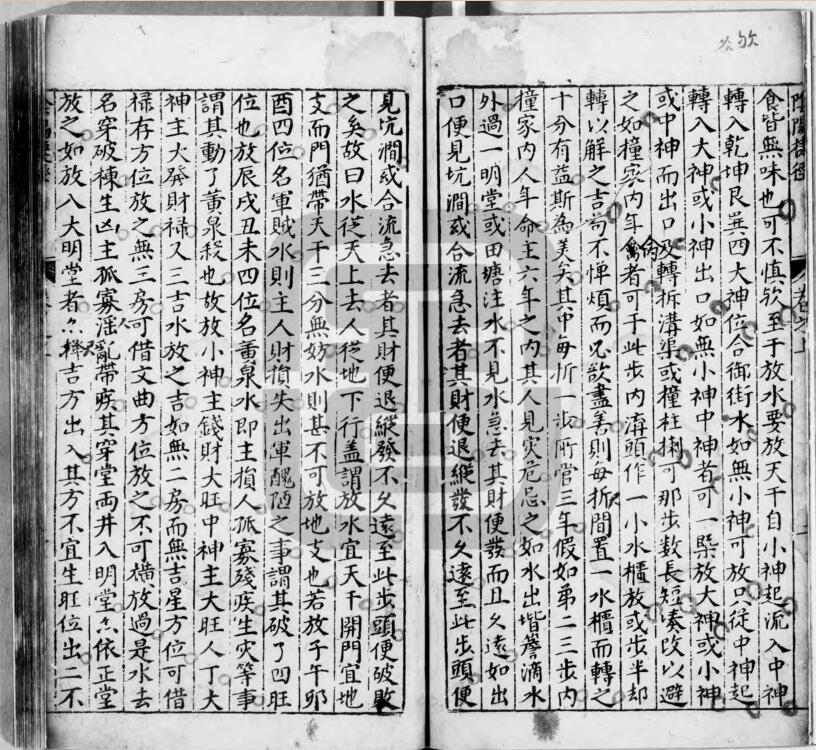 食皆無味也可不慎欤至于放水要放天干自小神起流入中神
轉入乾坤艮巽四大神位合御街水如無小神可放只從中神起
轉入大神或小神出口如無小神中神者可一槩放大神或小神
或中神而出口及轉折溝渠或撞柱捌可那步数長短凑改以避
之如撞家内年禽者可于此步内溝頭作一小水櫃放或步半却
轉以解之吉苟不憚煩而兄欲盡美則每折間置一水櫃而轉之
十分有益斯為美矣其中每折一步所管三年假如第二三步内
撞家内人年命主六年之内其人見灾危忌之如水出堦簷滴水
外過一明堂或田塘注水不見水急去其財便發而且久遠如出
口便見坑澗或合流急去者其財便退縱發不久遠至此步頭便
見坑澗或合流急去者其財便退縱發不久遠至此步頭便破敗
之矣故曰水從天上去人從地下行盖謂放水宜天干開門宜地
支而門猶帶天干三分無妨水則甚不可放地支也若放子午卯
酉四位名軍賊水則主人財損失出軍醜陋之事謂其破了四旺
位也放辰戌丑未四位名黄泉水即主損人孤寡殘疾生灾等事
謂其動了黄泉殺也故放小神主錢財大旺中神主大旺人丁大
神主大發財禄又三吉水放之吉如無二房而無吉星方位可借
禄存方位放之無三房可借文曲方位放之不可横放過是水去
名穿破棟生凶主孤寡淫亂帶疾其穿堂両井入明堂亦依正堂
放之如放入大明堂者亦擇吉方出入其方不宜生旺位出二不